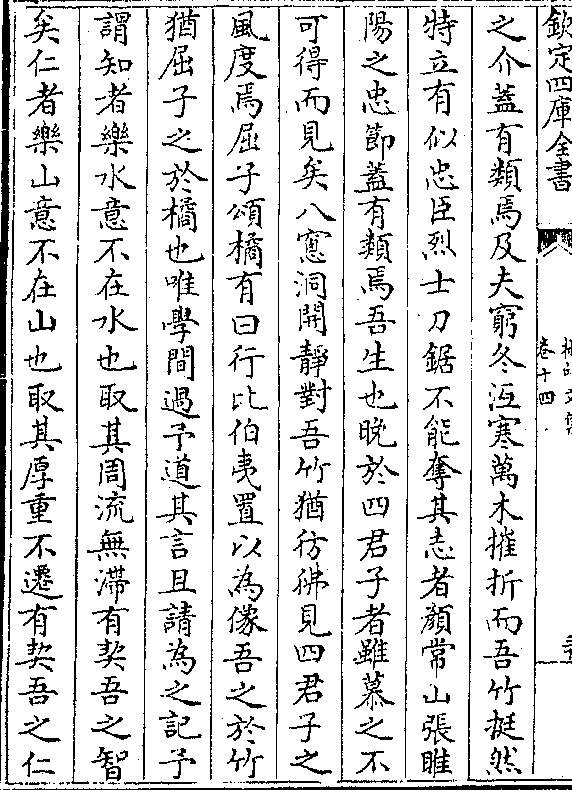 欽定四庫全書
卷十四
之介蓋有類焉及夫窮冬沍寒萬木摧折而吾竹挺然
特立有似忠臣烈士刀鋸不能奪其志者顏常山張睢
陽之忠節蓋有類焉吾生也晚於四君子者雖慕之不
可得而見矣八窓洞開靜對吾竹猶彷彿見四君子之
風度焉屈子頌橘有曰行比伯夷置以為像吾之於竹
猶屈子之於橘也唯學間過予道其言且請為之記予
謂知者樂水意不在水也取其周流無滯有契吾之智
矣仁者樂山意不在山也取其厚重不遷有契吾之仁